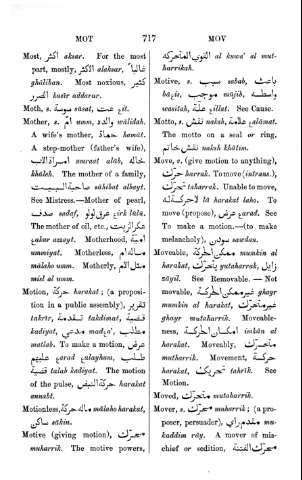 MOT 717 MOV
Most, s. aksar اكثر. For the most
part, mostly, الاكثر alaksar, غالباً
ghāliban. Most noxious, كثير
الضرر kasīr addarar.
Moth, s. سوسة sūsat, عت
Mother, s. ام umm, والدة wālidah.
A wife's mother, حماة hamāt.
A step-mother (father's wife),
امراة الاب amraat alāb, خالة
khāleh. The mother of a family,
صاحبة البيت sāhibat albayt.
See Mistress.—Mother of pearl,
صدف sadaf, عرق لولو
The mother of oil, etc.,
Motherhood, امية
ummīyat. Motherless, ماله ام
mālaho umm. Motherly, مثل الام
misl al umm.
Motion, حركة harakat; (a proposi-
tion in a public assembly), تقرير
takrīr, تقدمة takdimat, قضية
kadīyat,
مطلب matlab. To make a motion, عرض
طلب
قضية talab kadīyat. The motion
of the pulse, حركة النبض harakat
annabt.
Motionless, ماله حركة mālaho harakat,
ساكن sākin.
Motive (giving motion), محرك
muharrik. The motive powers,
القوى المحركة al kuwa' al mut-
harrikah.
Motive, s. سبب sabab, باعث
موجب mūjib, واسطة
wasitah, علة. See Cause.
Motto, s. نقش naksh, علامة
The motto on a seal or ring,
نقش خاتم naksh khātim.
Move, v. (give motion to anything),
حرك harrak. To move (intrans.),
تحرك taharrak. Unable to move,
لا حركة له lā harakat laho. To
move (propose), عرض. See
To make a motion.—(to make
melancholy), سودن sawdan.
Moveable, ممكن الحركة mumkin al
harakat, يتحرك yutaharrak,
زايل zāyil. See Removable.—Not
movable, غير ممكن الحركة ghayr
mumkin al harakat, غير متحرك
ghayr mutaharrik. Moveable-
ness, امكان الحركة imkān al
harakat. Moveably, متحرك
mutharrik. Movement, حركة
harakat, تحريك tahrīk. See
Motion.
Moved, متحرك mutaharrik.
Mover, s. محرك muharrik; (a pro-
poser, persuader), مقدم راي mu-
kaddim rāy. A mover of mis-
chief or sedition, محرك الفتنة